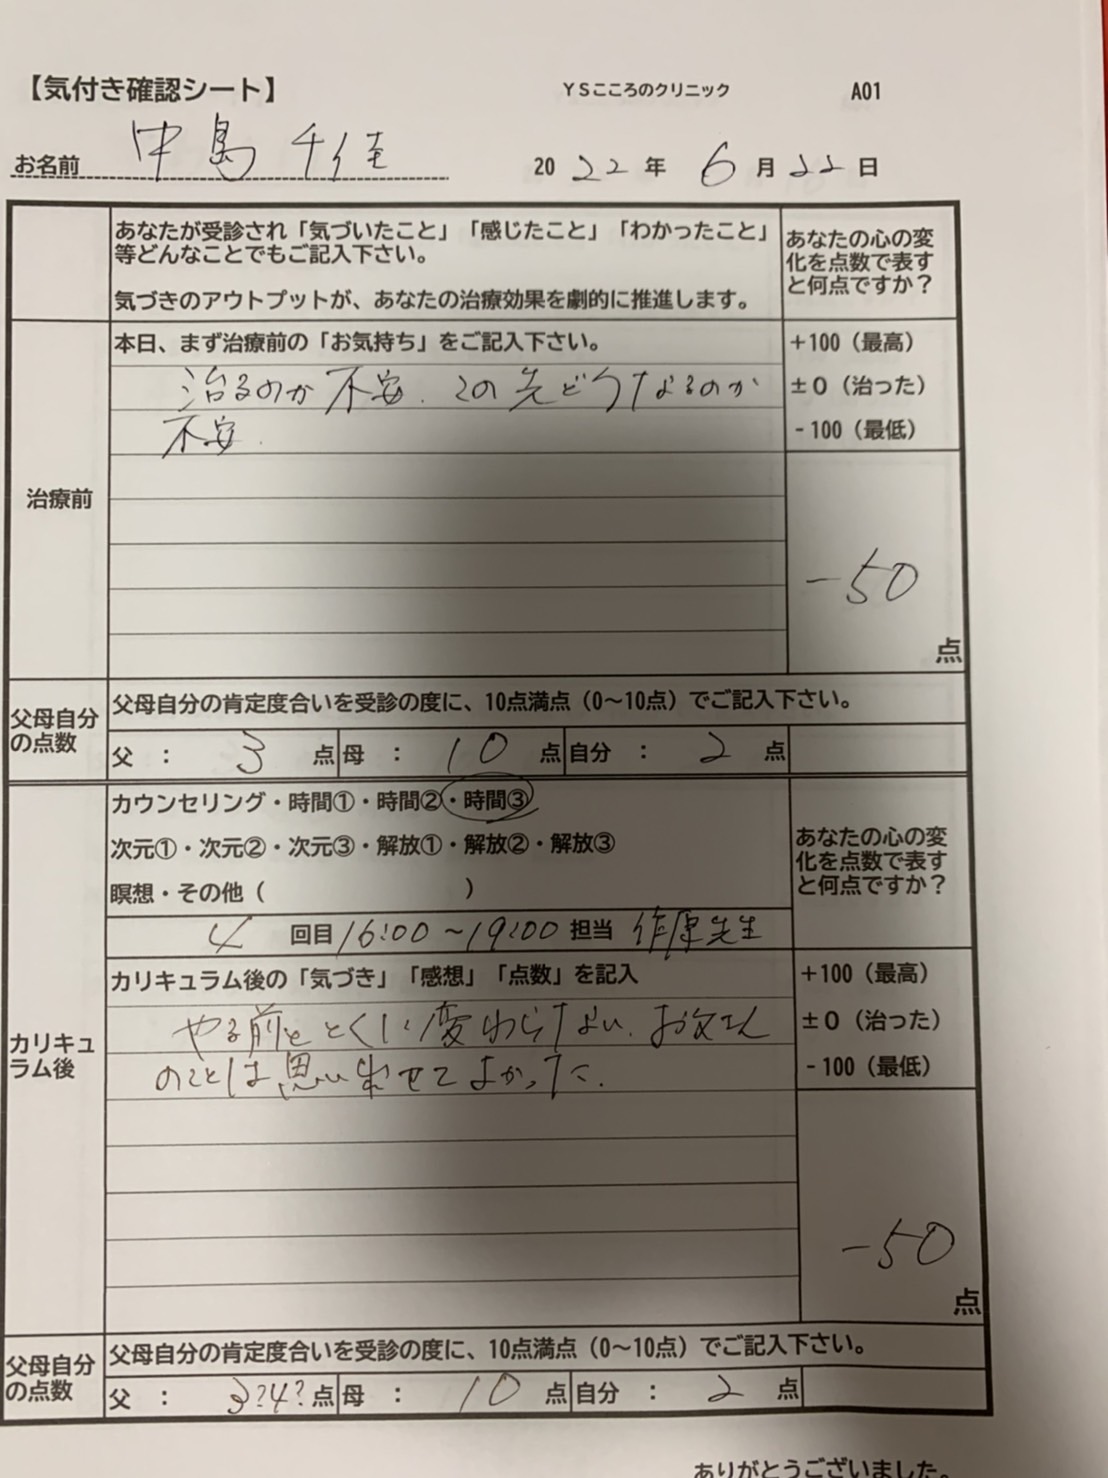 【気付き確認シート】 YSこころのクリニック A01
お名前 中島 千佳 2022年 6月22日
あなたが受診され「気づいたこと」「感じたこと」「わかったこと」
等どんなことでもご記入下さい。
気づきのアウトプットが、あなたの治療効果を劇的に推進します。
あなたの心の変
化を点数で表す
と何点ですか？
治療前
本日、まず治療前の「お気持ち」をご記入下さい。
治るのか不安．この先どうなるのか
不安．
+100（最高）
±0（治った）
-100（最低）
-50
点
父母自分
の点数
父母自分の肯定度合いを受診の度に、10点満点（0～10点）でご記入下さい。
父 ： 3 点 母 ： 10 点 自分 ： 2 点
カリキュ
ラム後
カウンセリング・時間①・時間②・時間③
次元①・次元②・次元③・解放①・解放②・解放③
瞑想・その他（ ）
4 回目 16:00～19:00 担当 作原先生
あなたの心の変
化を点数で表す
と何点ですか？
カリキュラム後の「気づき」「感想」「点数」を記入
やる前ととくに変わらない．お父さん
のことは思い出せてよかった．
+100（最高）
±0（治った）
-100（最低）
-50
点
父母自分
の点数
父母自分の肯定度合いを受診の度に、10点満点（0～10点）でご記入下さい。
父 ： 3?4?点 母 ： 10 点 自分 ： 2 点
ありがとうございました。